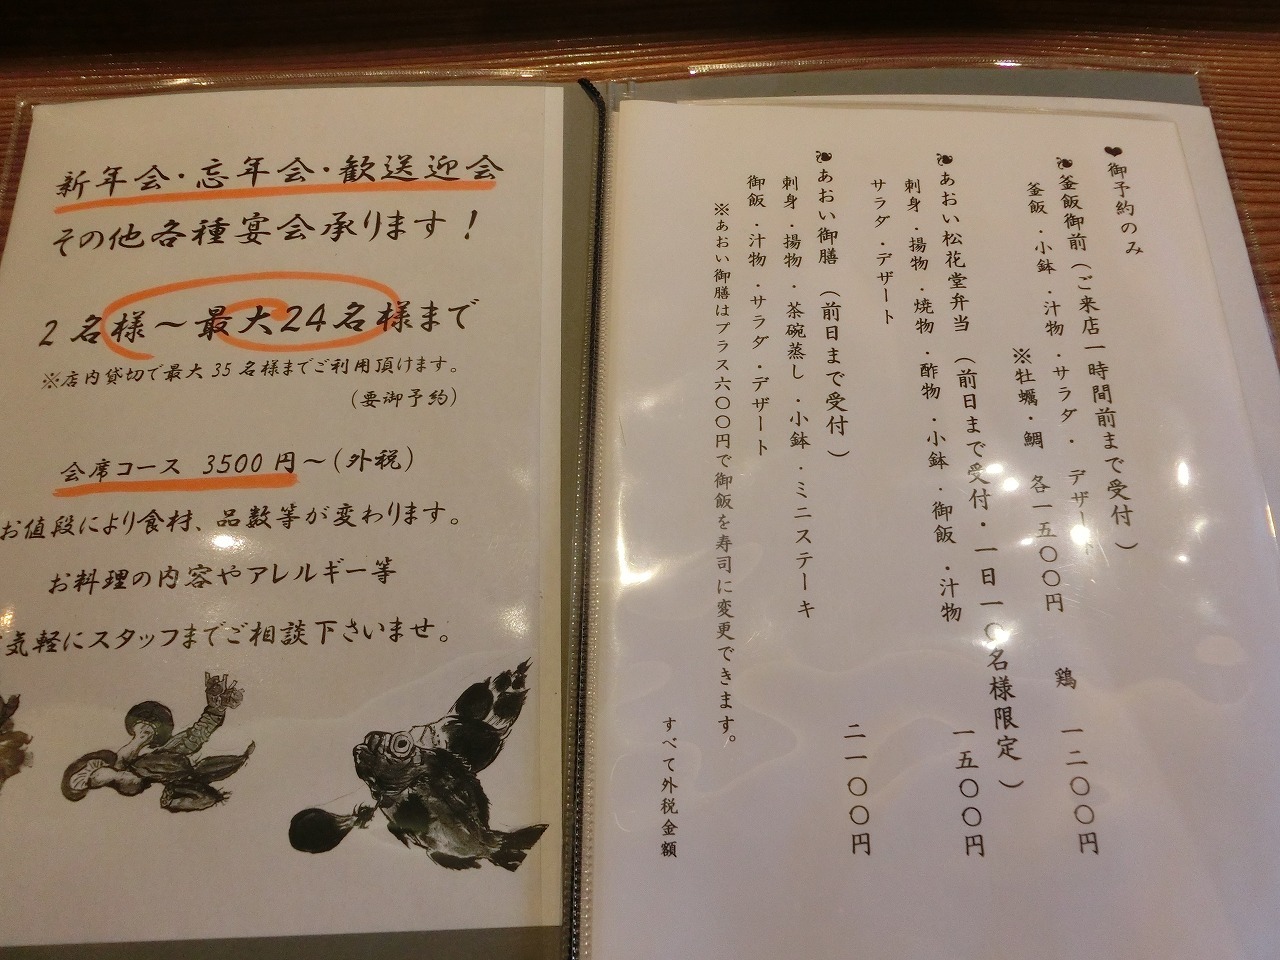 新年会・忘年会・歓送迎会
その他各種宴会承ります！
2名様～最大24名様まで
※店内貸切で最大35名様までご利用頂けます。
(要御予約)
会席コース 3500円～(外税)
お値段により食材、品数等が変わります。
お料理の内容やアレルギー等
気軽にスタッフまでご相談下さいませ。
❤御予約のみ
釜飯御前（ご来店一時間前まで受付）
釜飯・小鉢・汁物・サラダ・デザート 鶏 一二〇〇円
※牡蠣・鯛 各一五〇〇円
あおい松花堂弁当（前日まで受付・一日一〇名様限定）
刺身・揚物・焼物・酢物・小鉢・御飯・汁物 一五〇〇円
サラダ・デザート
あおい御膳（前日まで受付） 二一〇〇円
刺身・揚物・茶碗蒸し・小鉢・ミニステーキ
御飯・汁物・サラダ・デザート
※あおい御膳はプラス六〇〇円で御飯を寿司に変更できます。
すべて外税金額